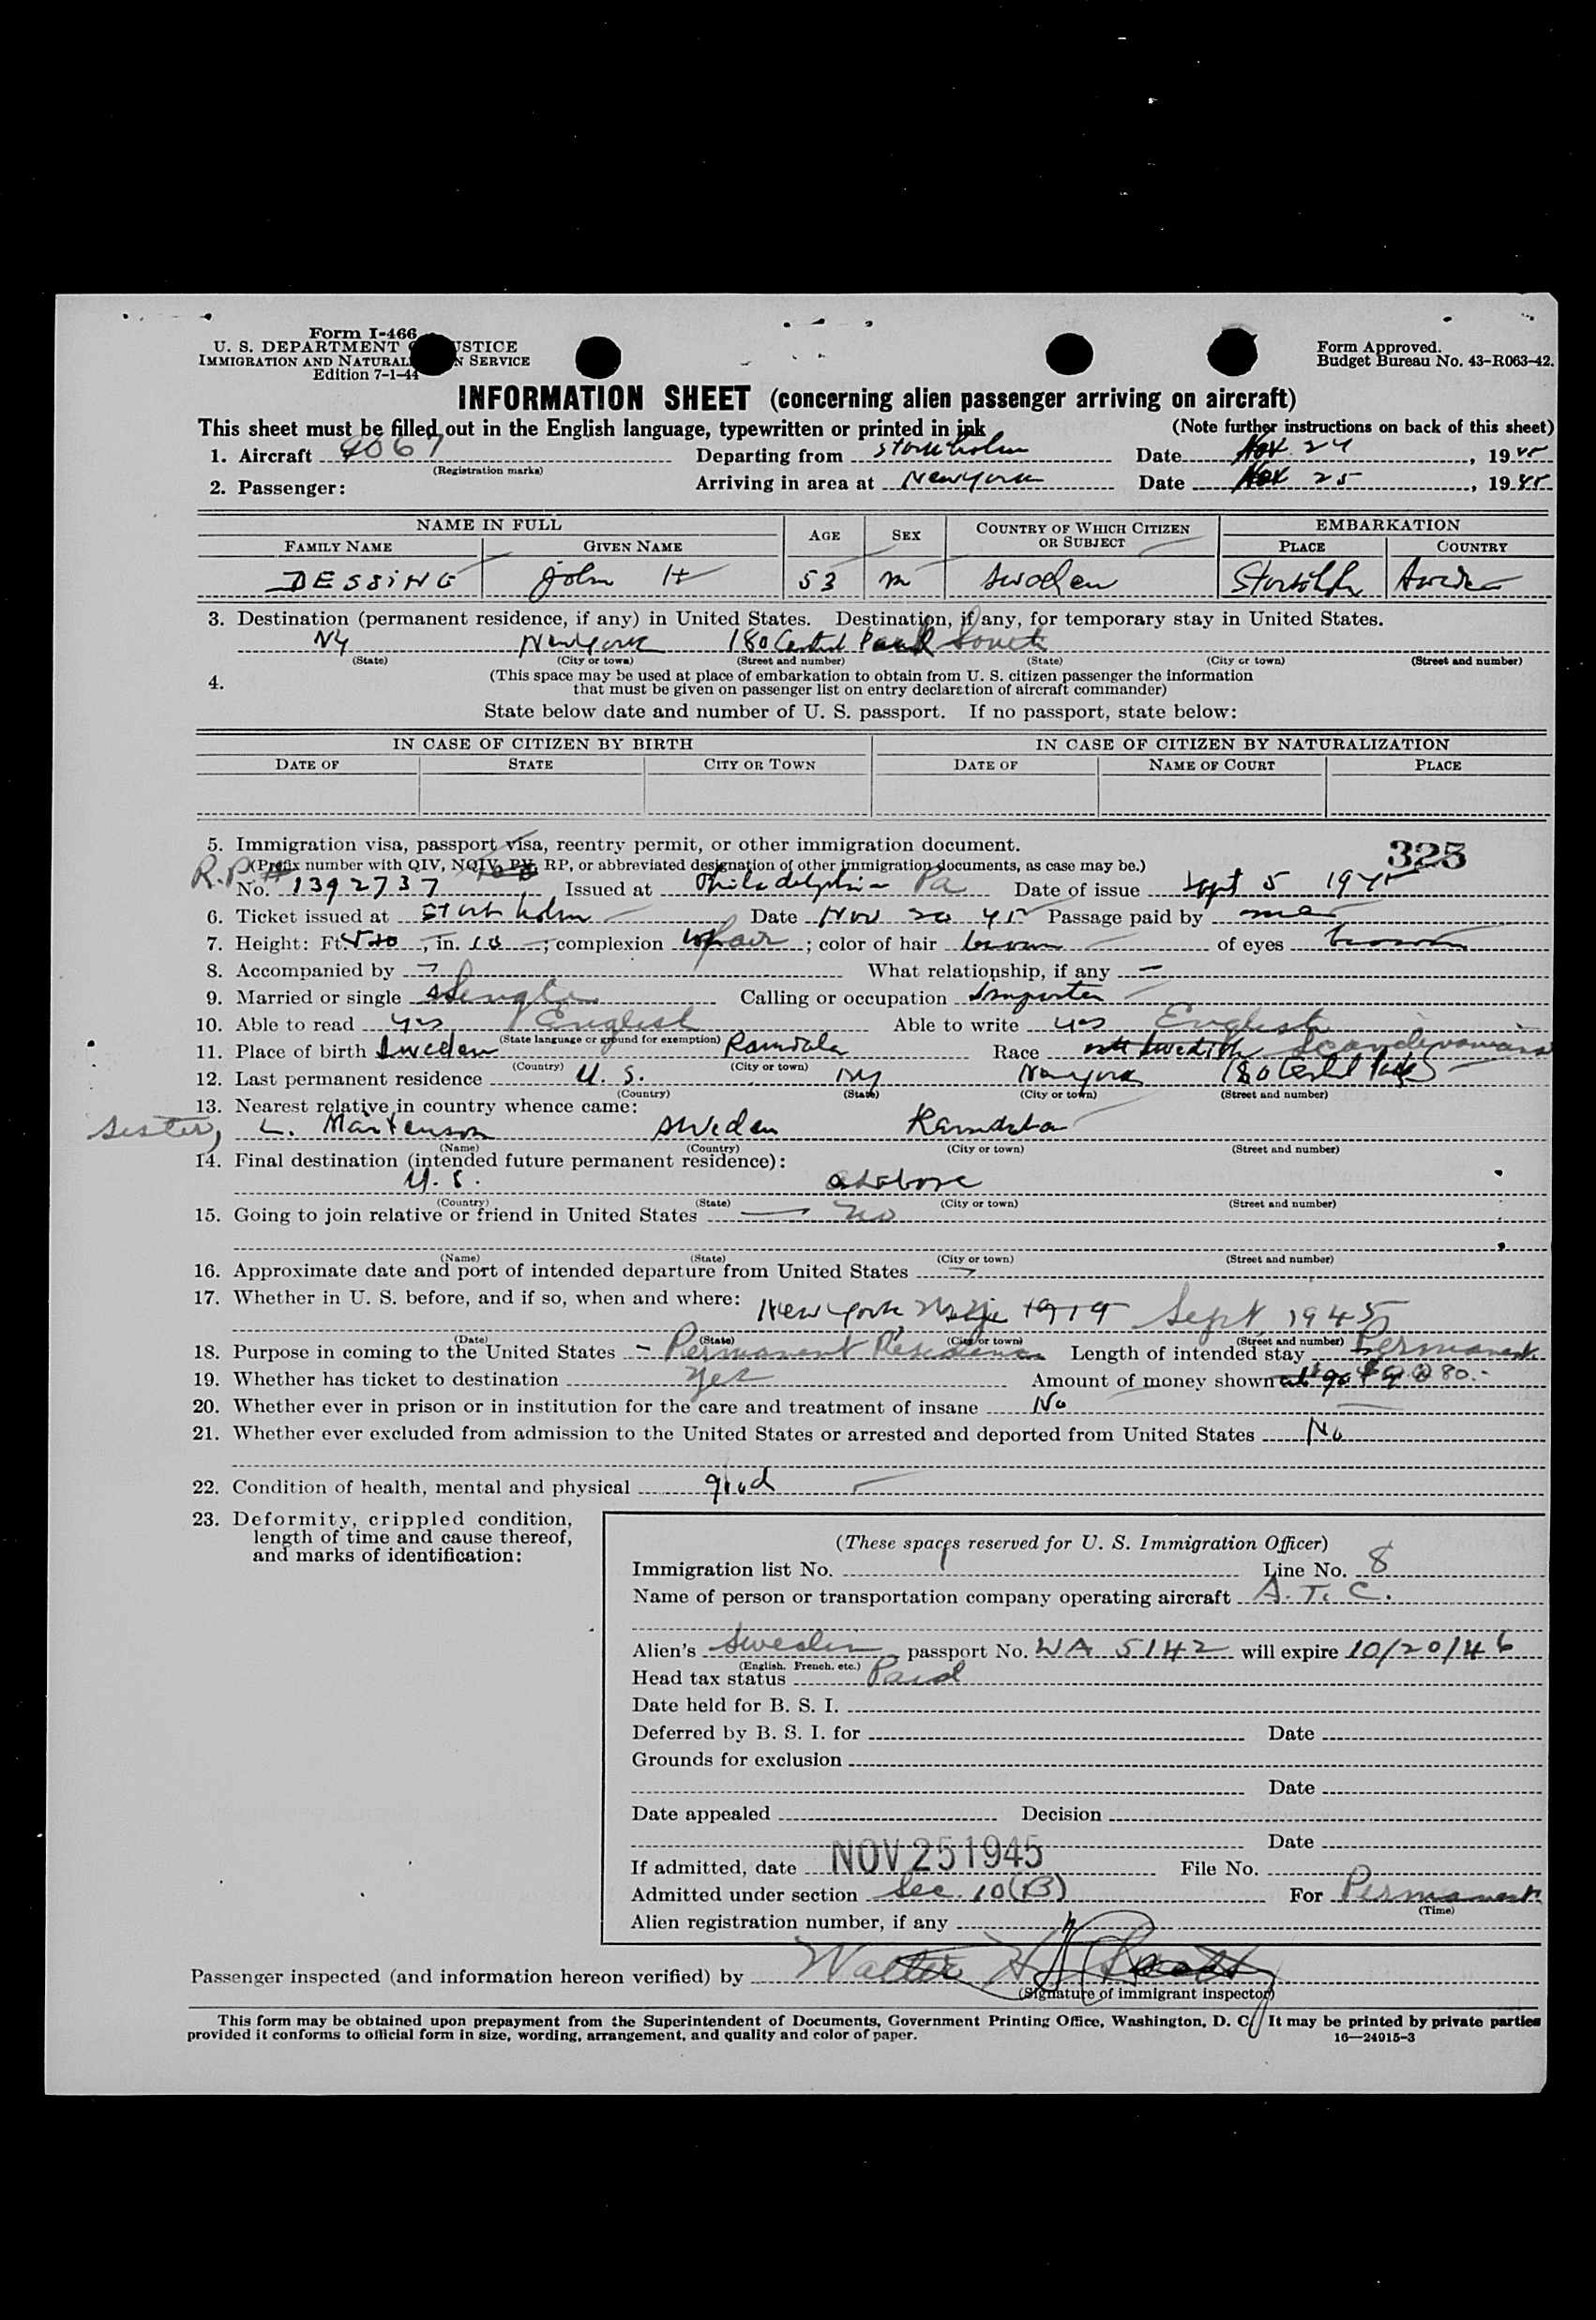 Form I-466
U. S. DEPARTMENT JUSTICE
IMMIGRATION AND NATURAL N SERVICE
Edition 7-1-44
Form Approved.
Budget Bureau No. 43-R063-42.
INFORMATION SHEET (concerning alien passenger arriving on aircraft)
This sheet must be filled out in the English language, typewritten or printed in ink (Note further instructions on back of this sheet)
1. Aircraft 9067 Departing from Stockholm Date Nov 24, 1945
(Registration marks)
2. Passenger: Arriving in area at New York Date Nov 25, 1945
NAME IN FULL AGE SEX COUNTRY OF WHICH CITIZEN OR SUBJECT EMBARKATION
FAMILY NAME GIVEN NAME PLACE COUNTRY
DESSING John H 53 m Sweden Stockholm Sweden
3. Destination (permanent residence, if any) in United States. Destination, if any, for temporary stay in United States.
NY New York 180 Central Park South
(State) (City or town) (Street and number) (State) (City or town) (Street and number)
4. (This space may be used at place of embarkation to obtain from U. S. citizen passenger the information
that must be given on passenger list on entry declaration of aircraft commander)
State below date and number of U. S. passport. If no passport, state below:
IN CASE OF CITIZEN BY BIRTH IN CASE OF CITIZEN BY NATURALIZATION
DATE OF STATE CITY OR TOWN DATE OF NAME OF COURT PLACE
5. Immigration visa, passport visa, reentry permit, or other immigration document.
325
(Prefix number with QIV, NQIV, PV, RP, or abbreviated designation of other immigration documents, as case may be.)
R.P. No. 1392737 Issued at Philadelphia Pa Date of issue Sept 5 1945
6. Ticket issued at Stockholm Date Nov 20 45 Passage paid by me
7. Height: Ft. , in. 10; complexion fair; color of hair brown of eyes brown
8. Accompanied by — What relationship, if any —
9. Married or single Single Calling or occupation Importer
10. Able to read yes English Able to write yes English
(State language or ground for exemption)
11. Place of birth Sweden Ramdala Race Swedish Scandinavian
(Country) (City or town)
12. Last permanent residence U. S. NY New York 180 Central Park S
(Country) (State) (City or town) (Street and number)
13. Nearest relative in country whence came:
Sister, L. Martenson Sweden Ramdala
(Name) (Country) (City or town) (Street and number)
14. Final destination (intended future permanent residence):
U. S. as above
(Country) (State) (City or town) (Street and number)
15. Going to join relative or friend in United States — No
(Name) (State) (City or town) (Street and number)
16. Approximate date and port of intended departure from United States —
17. Whether in U. S. before, and if so, when and where: New York 1919 Sept 1945
(Date) (State) (City or town) (Street and number)
18. Purpose in coming to the United States - Permanent Residence Length of intended stay Permanent
19. Whether has ticket to destination yes Amount of money shown 80.-
20. Whether ever in prison or in institution for the care and treatment of insane No
21. Whether ever excluded from admission to the United States or arrested and deported from United States No
22. Condition of health, mental and physical good
23. Deformity, crippled condition,
length of time and cause thereof,
and marks of identification:
(These spaces reserved for U. S. Immigration Officer)
Immigration list No. Line No. 8
Name of person or transportation company operating aircraft A. T. C.
Alien's Sweden passport No. WA 5142 will expire 10/20/46
(English, French, etc.)
Head tax status Paid
Date held for B. S. I.
Deferred by B. S. I. for Date
Grounds for exclusion
Date
Date appealed Decision
Date
If admitted, date NOV 25 1945 File No.
Admitted under section Sec. 10(B) For Permanent
(Time)
Alien registration number, if any
Passenger inspected (and information hereon verified) by Walter H
(Signature of immigrant inspector)
This form may be obtained upon prepayment from the Superintendent of Documents, Government Printing Office, Washington, D. C. It may be printed by private parties
provided it conforms to official form in size, wording, arrangement, and quality and color of paper. 16—24915-3